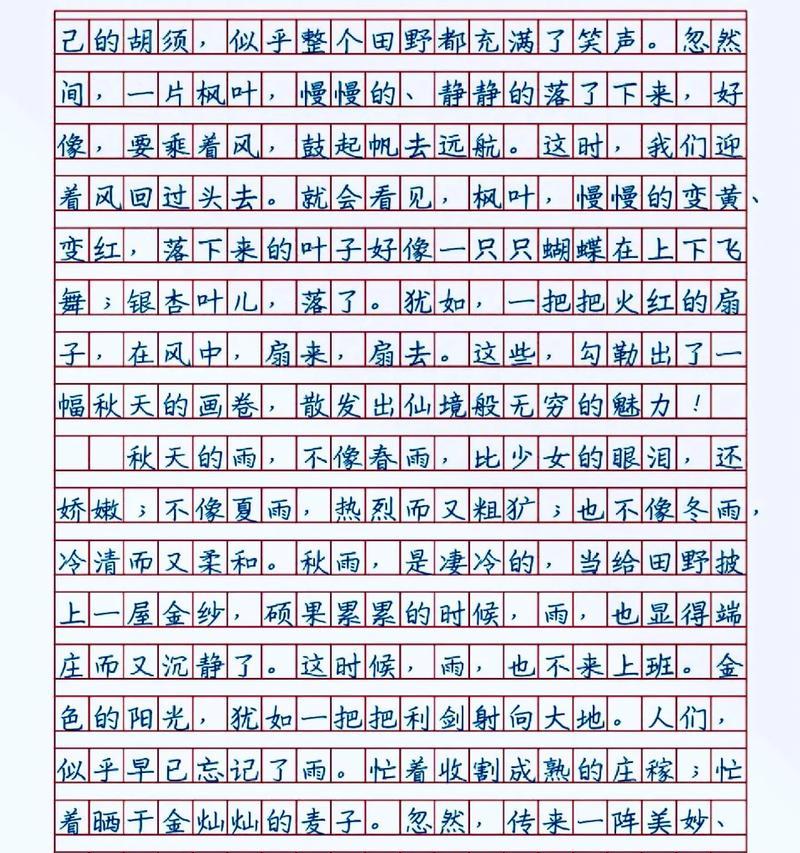 己的胡须，似乎整个田野都充满了笑声。忽然
间，一片枫叶，慢慢的、静静的落了下来，好
像，要乘着风，鼓起帆去远航。这时，我们迎
着风回过头去。就会看见，枫叶，慢慢的变黄、
变红，落下来的叶子好像一只只蝴蝶在上下飞
舞；银杏叶儿，落了。犹如，一把把火红的扇
子，在风中，扇来，扇去。这些，勾勒出了一
幅秋天的画卷，散发出仙境般无穷的魅力！
秋天的雨，不像春雨，比少女的眼泪，还
娇嫩；不像夏雨，热烈而又粗犷；也不像冬雨，
冷清而又柔和。秋雨，是凄冷的，当给田野披
上一屋金纱，硕果累累的时候，雨，也显得端
庄而又沉静了。这时候，雨，也不来上班。金
色的阳光，犹如一把把利剑射向大地。人们，
似乎早已忘记了雨。忙着收割成熟的庄稼；忙
着晒干金灿灿的麦子。忽然，传来一阵美妙、